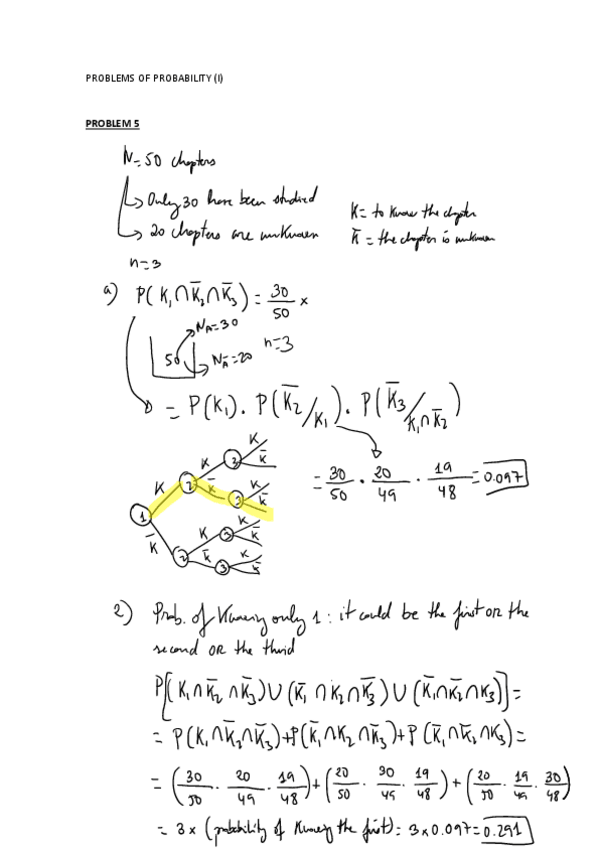 PROBLEMS OF PROBABILITY (I)
PROBLEM 5
N=50 chapters
↳ Only 30 have been studied
↳ 20 chapters are unknown
K = to know the chapter
K̅ = the chapter is unknown
n=3
a) P(K₁∩K̅₂∩K̅₃) = 30/50 ×
50
N_A=30
N_A̅=20
n=3
= P(K₁) · P(K̅₂/K₁) · P(K̅₃/K₁∩K̅₂)
= 30/50 · 20/49 · 19/48 = 0.097
K
K K̅
K 2 K̅ 3 K
1 K̅
K̅ K 3 K
2 K̅ K̅
3 K
K̅
2) Prob. of Knowing only 1 : it could be the first OR the
second OR the third
P[(K₁∩K̅₂∩K̅₃)∪(K̅₁∩K₂∩K̅₃)∪(K̅₁∩K̅₂∩K₃)] =
= P(K₁∩K̅₂∩K̅₃)+P(K̅₁∩K₂∩K̅₃)+P(K̅₁∩K̅₂∩K₃) =
= (30/50 · 20/49 · 19/48) + (20/50 · 30/49 · 19/48) + (20/50 · 19/49 · 30/48)
= 3 × (probability of Knowing the first) = 3 × 0.097 = 0.291